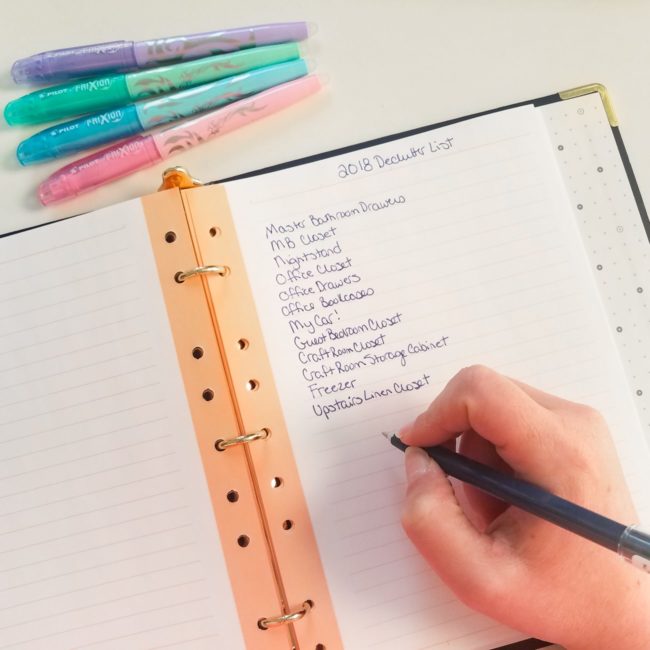 PILOT FRIXION
PILOT FRIXION
PILOT FRIXION
2018 Declutter List
Master Bathroom Drawers
MB Closet
Nightstand
Office Closet
Office Drawers
Office Bookcases
My Car!
Guest Bedroom Closet
Craft Room Closet
Craft Room Storage Cabinet
Freezer
Upstairs Linen Closet